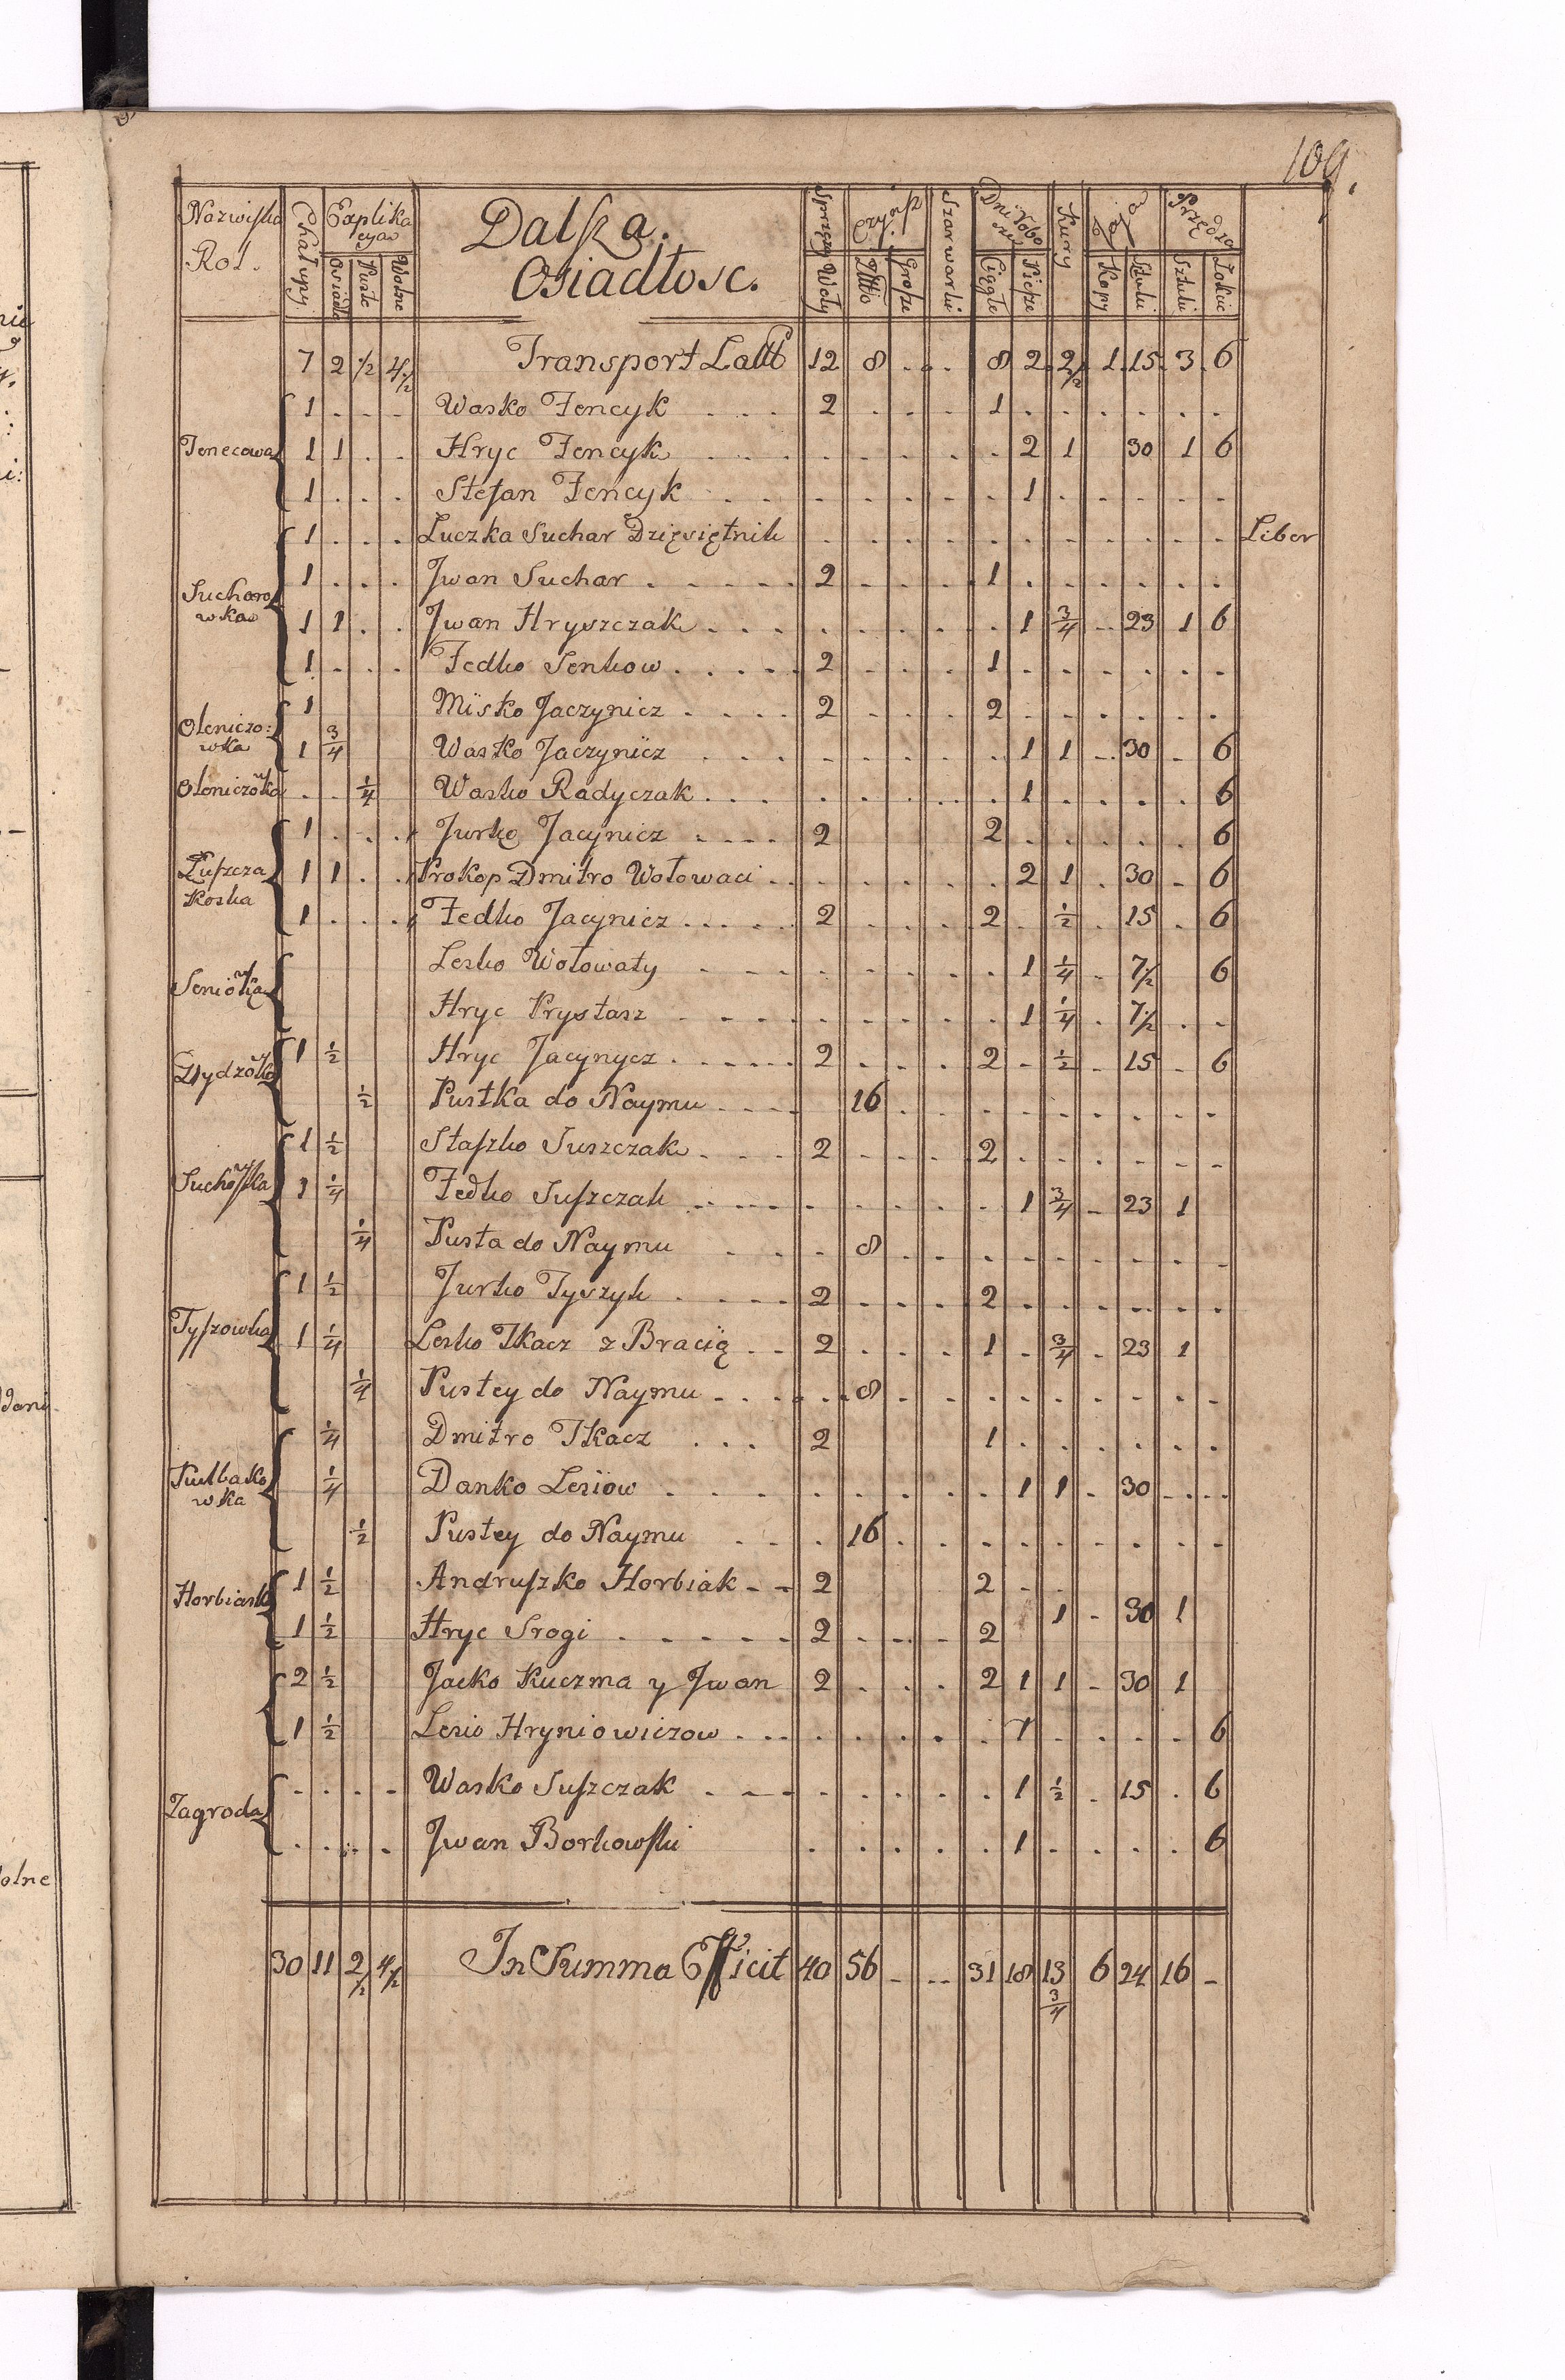 109.
Nazwiska Rol. Chałupy Explikacya Osiadłe Puste Wolne Dalsza Osiadłosc. Sprzęży Woły Czynsz Zł Grosze Szarwarki Dni Robo Ciągłe Piesze Kury Jaja Kopy Sztuki Przędza Sztuki Łokcie
7 2 1/2 4 1/2 Transport Latt 12 8 . . . 8 2 2 1/2 1 15 3 6
1 . . . Wasko Fencyk 2 1
Fenecowa 1 1 . . Hryc Fencyk 2 1 30 1 6
1 . . . Stefan Fencyk 1
1 . . . Luczka Suchar Dzięsiętnik Liber
1 . . . Jwan Suchar 2 1
Sucharowka 1 1 . . Jwan Hryszczak 1 3/4 23 1 6
1 . . . Fedko Senkow 2 1
1 Misko Jaczynicz 2 2
Oleniczo: wka 1 3/4 Wasko Jaczynicz 1 1 30 6
Oleniczowka . . 1/4 Wasko Radyczak 1 6
1 . . . Jurko Jacynicz 2 2 6
Łuszcza Koska 1 1 . . Prokop Dmitro Wołowaci 2 1 30 6
1 . . . Fedko Jacynicz 2 2 1/2 15 6
Seniowka Lesko Wołowaty 1 1/4 7 1/2 6
Hryc Prystasz 1 1/4 7 1/2
Zydzowka 1 1/2 Hryc Jacynycz 2 2 1/2 15 6
1/2 Pustka do Naymu 16
1 1/2 Staszko Suszczak 2 2
Suchowska 1 1/4 Fedko Suszczak 1 3/4 23 1
1/4 Pusta do Naymu 8
1 1/2 Jurko Tyszyk 2 2
Tyszowka 1 1/4 Lesko Tkacz z Bracią 2 1 3/4 23 1
1/4 Pustey do Naymu 8
1/4 Dmitro Tkacz 2 1
Kulbakowka 1/4 Danko Lesiow 1 1 30
1/2 Pustey do Naymu 16
Horbiaska 1 1/2 Andruszko Horbiak 2 2
1 30 1
1 1/2 Hryc Srogi 2 2
2 1/2 Jacko Kuczma y Jwan 2 2 1 1 30 1
1 1/2 Lesio Hryniowiczow 1 6
Zagroda . . . . Wasko Suszczak 1 1/2 15 6
. . . . Jwan Borkowski 1 6
30 11 2 1/2 4 1/2 In Summa Efficit 40 56 31 18 13 3/4 6 24 16